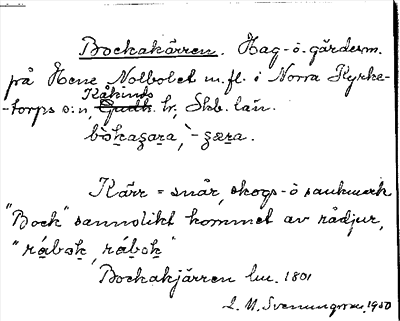 Bockakärren. Hag- o. gärdesm.
på Hene Nolbolet m.fl. i Norra Kyrke-
Kåkinds
-torps s:n, hr, Skb. län.
bòkaʒara, - ʒæra.
Kärr = snår, skogs- o sankmark
"Bock" sannolikt kommet av rådjur,
"råbok, råbok"
Bockakjärren lm. 1801
L. M. Svenungsson, 1950